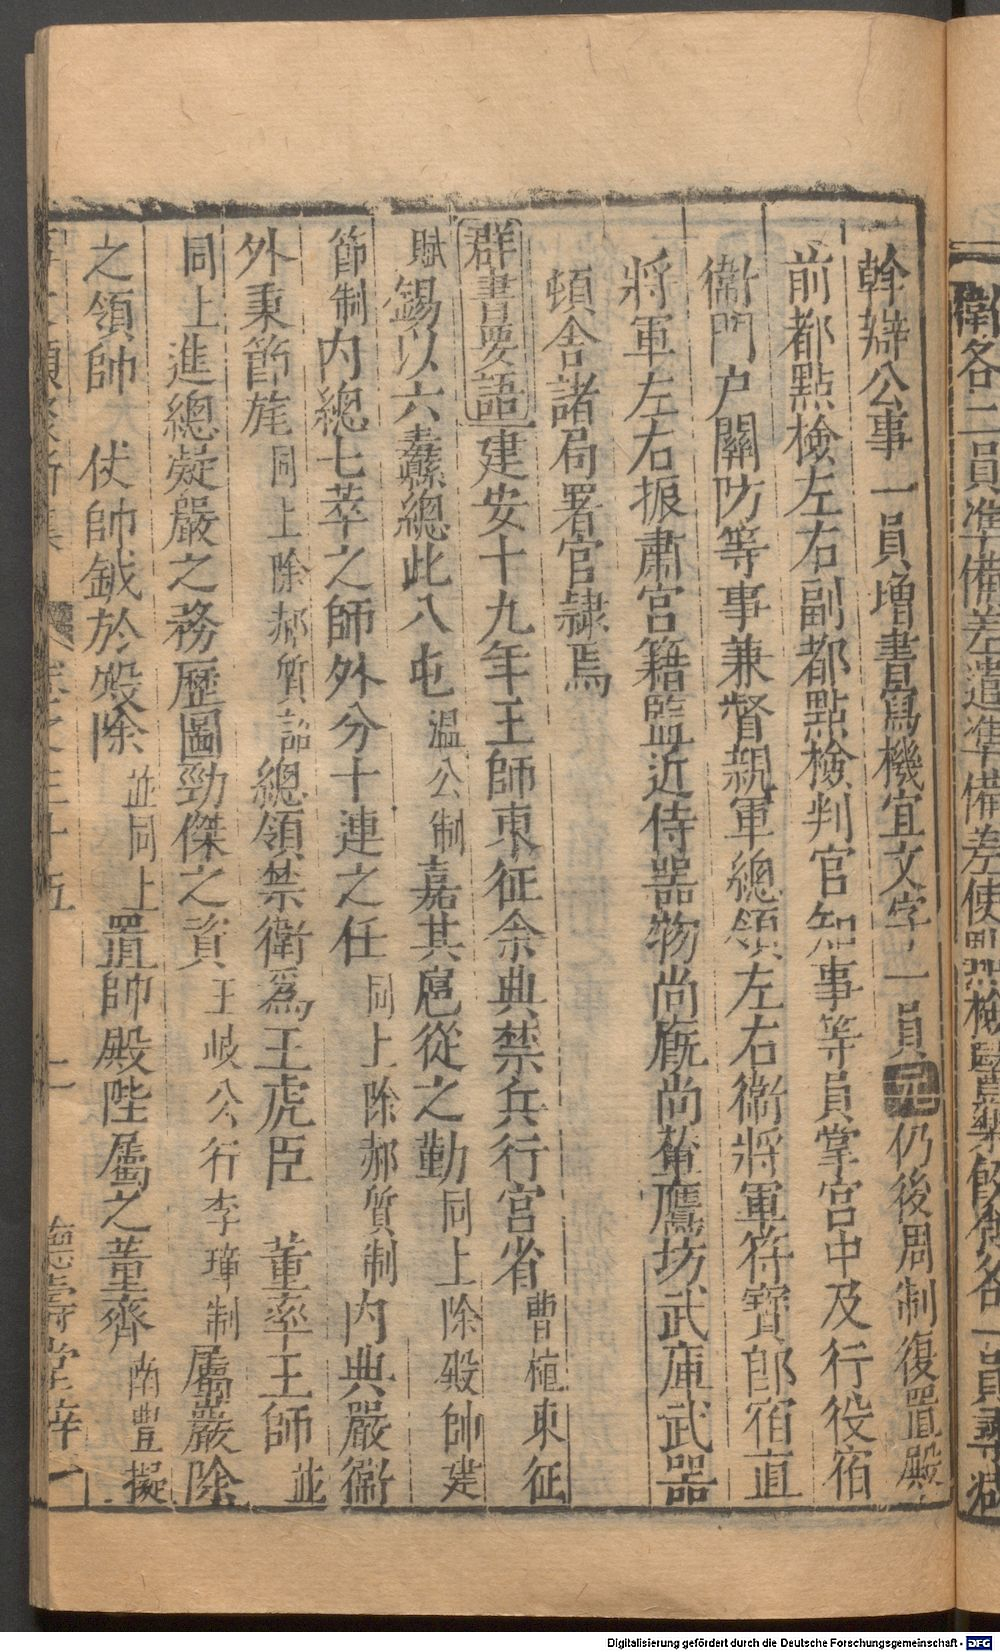 衛各二員準備差遣準備差使
幹辦公事一員增書寫機宜文字一員元仍後周制復置殿
前都點檢左右副都點檢判官知事等員掌宮中及行役宿
衛門户關防等事兼督親軍總領左右衛將軍符寶郎宿直
將軍左右振肅宮籍監近侍器物尚廐尚輦鷹坊武庫武器
頓舍諸局署官隸焉
群書要語建安十九年王師東征余典禁兵行宮省曹植東征
賦錫以六纛總此八屯温公制嘉其扈從之勤同上除殿帥建
節制内總七萃之師外分十連之任同上除郝質制内典嚴衛
外秉節旄同上除郝質詔總領禁衛爲王虎臣 董率王師並
同上進總凝嚴之務歷圖勁傑之資王岐公行李璋制屬嚴除
之領帥 仗帥鉞於殿除並同上置帥殿陛屬之董齊南豐擬
卷之三十五 二 德壽堂梓
Digitalisierung gefördert durch die Deutsche Forschungsgemeinschaft - DFG